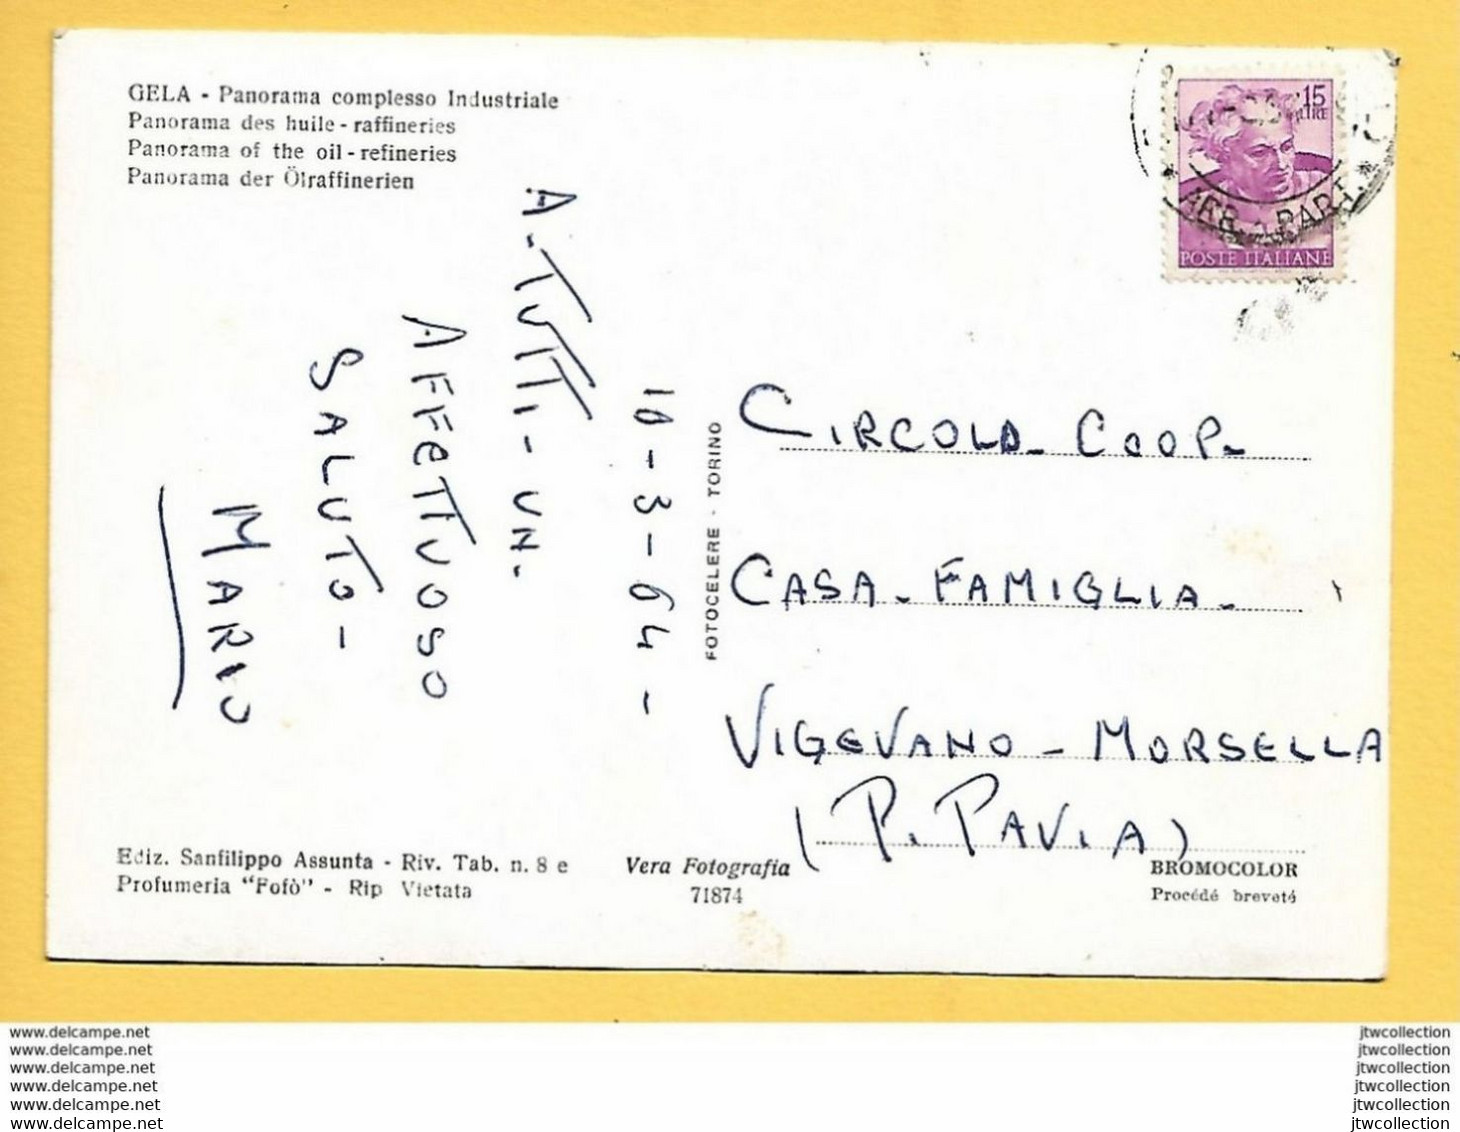 GELA - Panorama complesso Industriale
Panorama des huile - raffineries
Panorama of the oil - refineries
Panorama der Ölraffinerien
15
LIRE
ARR. PAR
POSTE ITALIANE
10-3-64-
A-TUTTI-UN.
AFFETTUOSO
SALUTO-
MARIO
FOTOCELERE · TORINO
CIRCOLO-COOP-
CASA-FAMIGLIA-
VIGEVANO-MORSELLA
(P. PAVIA)
Ediz. Sanfilippo Assunta - Riv. Tab. n. 8 e
Profumeria "Fofò" - Rip Vietata
Vera Fotografia
71874
BROMOCOLOR
Procédé breveté
www.delcampe.net
www.delcampe.net
www.delcampe.net
www.delcampe.net
www.delcampe.net
www.delcampe.net
jtwcollection
jtwcollection
jtwcollection
jtwcollection
jtwcollection
jtwcollection